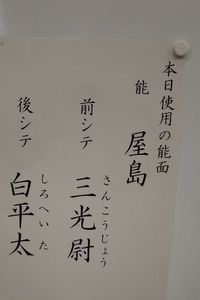 本日使用の能面
能
屋島
さんこうじょう
前シテ 三光尉
しろへいた
後シテ 白平太